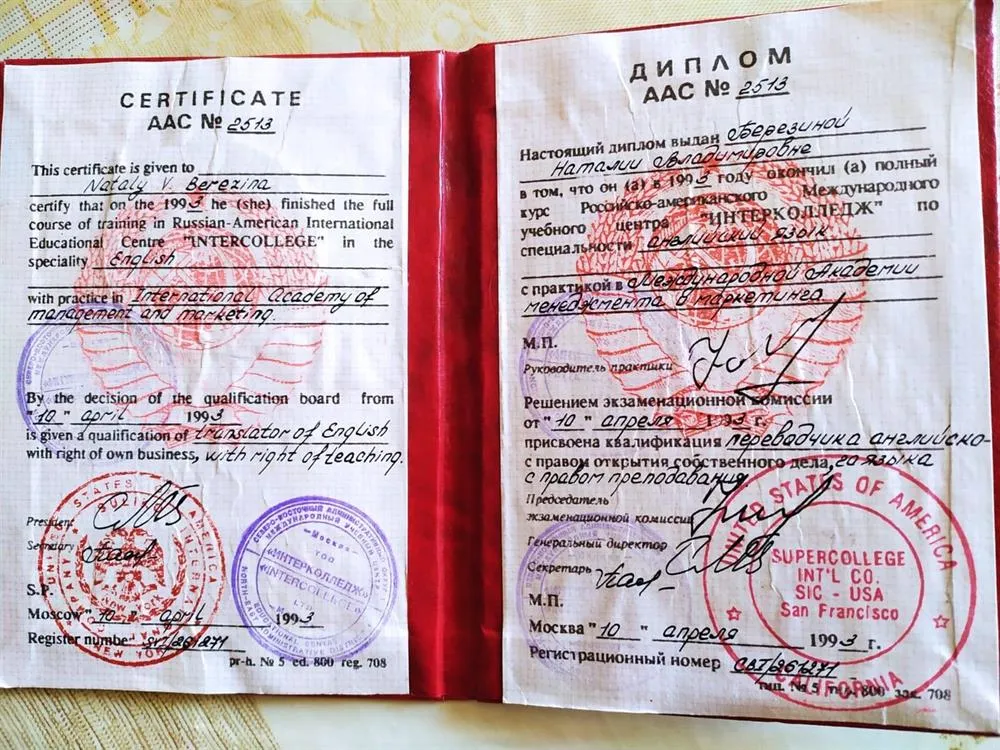 CERTIFICATE
AAC № 2513
This certificate is given to
Nataly V. Berezina
certify that on the 1993 he (she) finished the full
course of training in Russian-American International
Educational Centre "INTERCOLLEGE" in the
speciality English
with practice in International Academy of
management and marketing.
By the decision of the qualification board from
"10" april 1993
is given a qualification of translator of English
with right of own business, with right of teaching.
President
Secretary
S.P.
Moscow "10" april 1993
Register number
pr-h. № 5 ed. 800 reg. 708
STATES
AMERICA
NEW YORK
СЕВЕРО-ВОСТОЧНЫЙ АДМИНИСТРАТИВНЫЙ ОКРУГ
МЕЖДУНАРОДНЫЙ УЧЕБНЫЙ ЦЕНТР
Москва
ТОО
«ИНТЕРКОЛЛЕДЖ»
«INTERCOLLEGE»
LTD
EDUCATIONAL CENTRE
NORTH-EAST ADMINISTRATIVE DISTRICT
ДИПЛОМ
ААС № 2513
Настоящий диплом выдан Березиной
Наталии Владимировне
в том, что он (а) в 1993 году окончил (а) полный
курс Российско-американского Международного
учебного центра "ИНТЕРКОЛЛЕДЖ" по
специальности английский язык
с практикой в Международной Академии
менеджмента и маркетинга
М.П.
Руководитель практики
Решением экзаменационной комиссии
от "10" апреля 1993 г.
присвоена квалификация переводчика английско-
с правом открытия собственного дела, го языка
с правом преподавания
Председатель
экзаменационной комиссии
Генеральный директор
Секретарь
М.П.
Москва "10" апреля 1993 г.
Регистрационный номер СВТ/261271
тип. № 5 тир. 800 зак. 708
UNITED STATES OF AMERICA
SUPERCOLLEGE
INT'L CO.
SIC - USA
San Francisco
CALIFORNIA